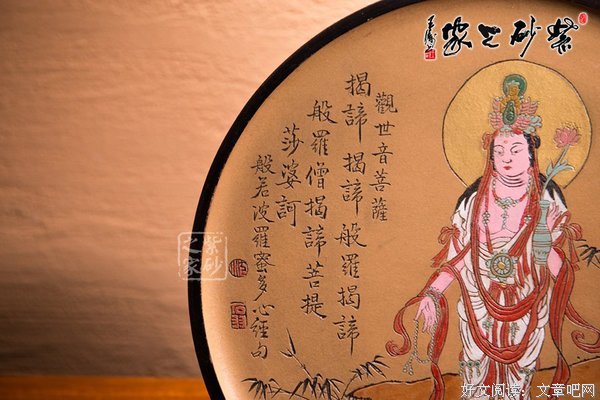 紫砂之家
觀世音菩薩
揭諦揭諦般羅揭諦
般羅僧揭諦菩提
莎婆訶
般若波羅蜜多心經句
紫砂之家
好文阅读：文章吧网